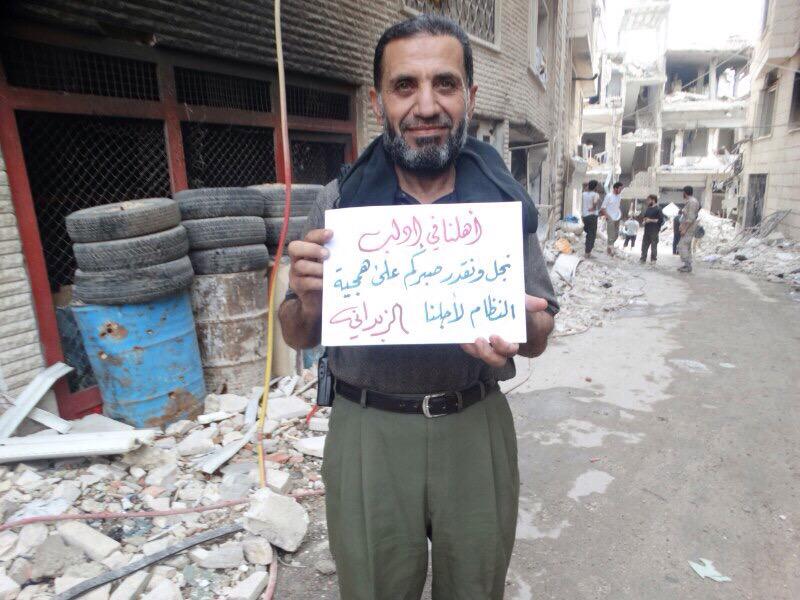 أهلنا في إدلب
نجل ونقدر صبركم على همجية
النظام لأجلنا الزبداني